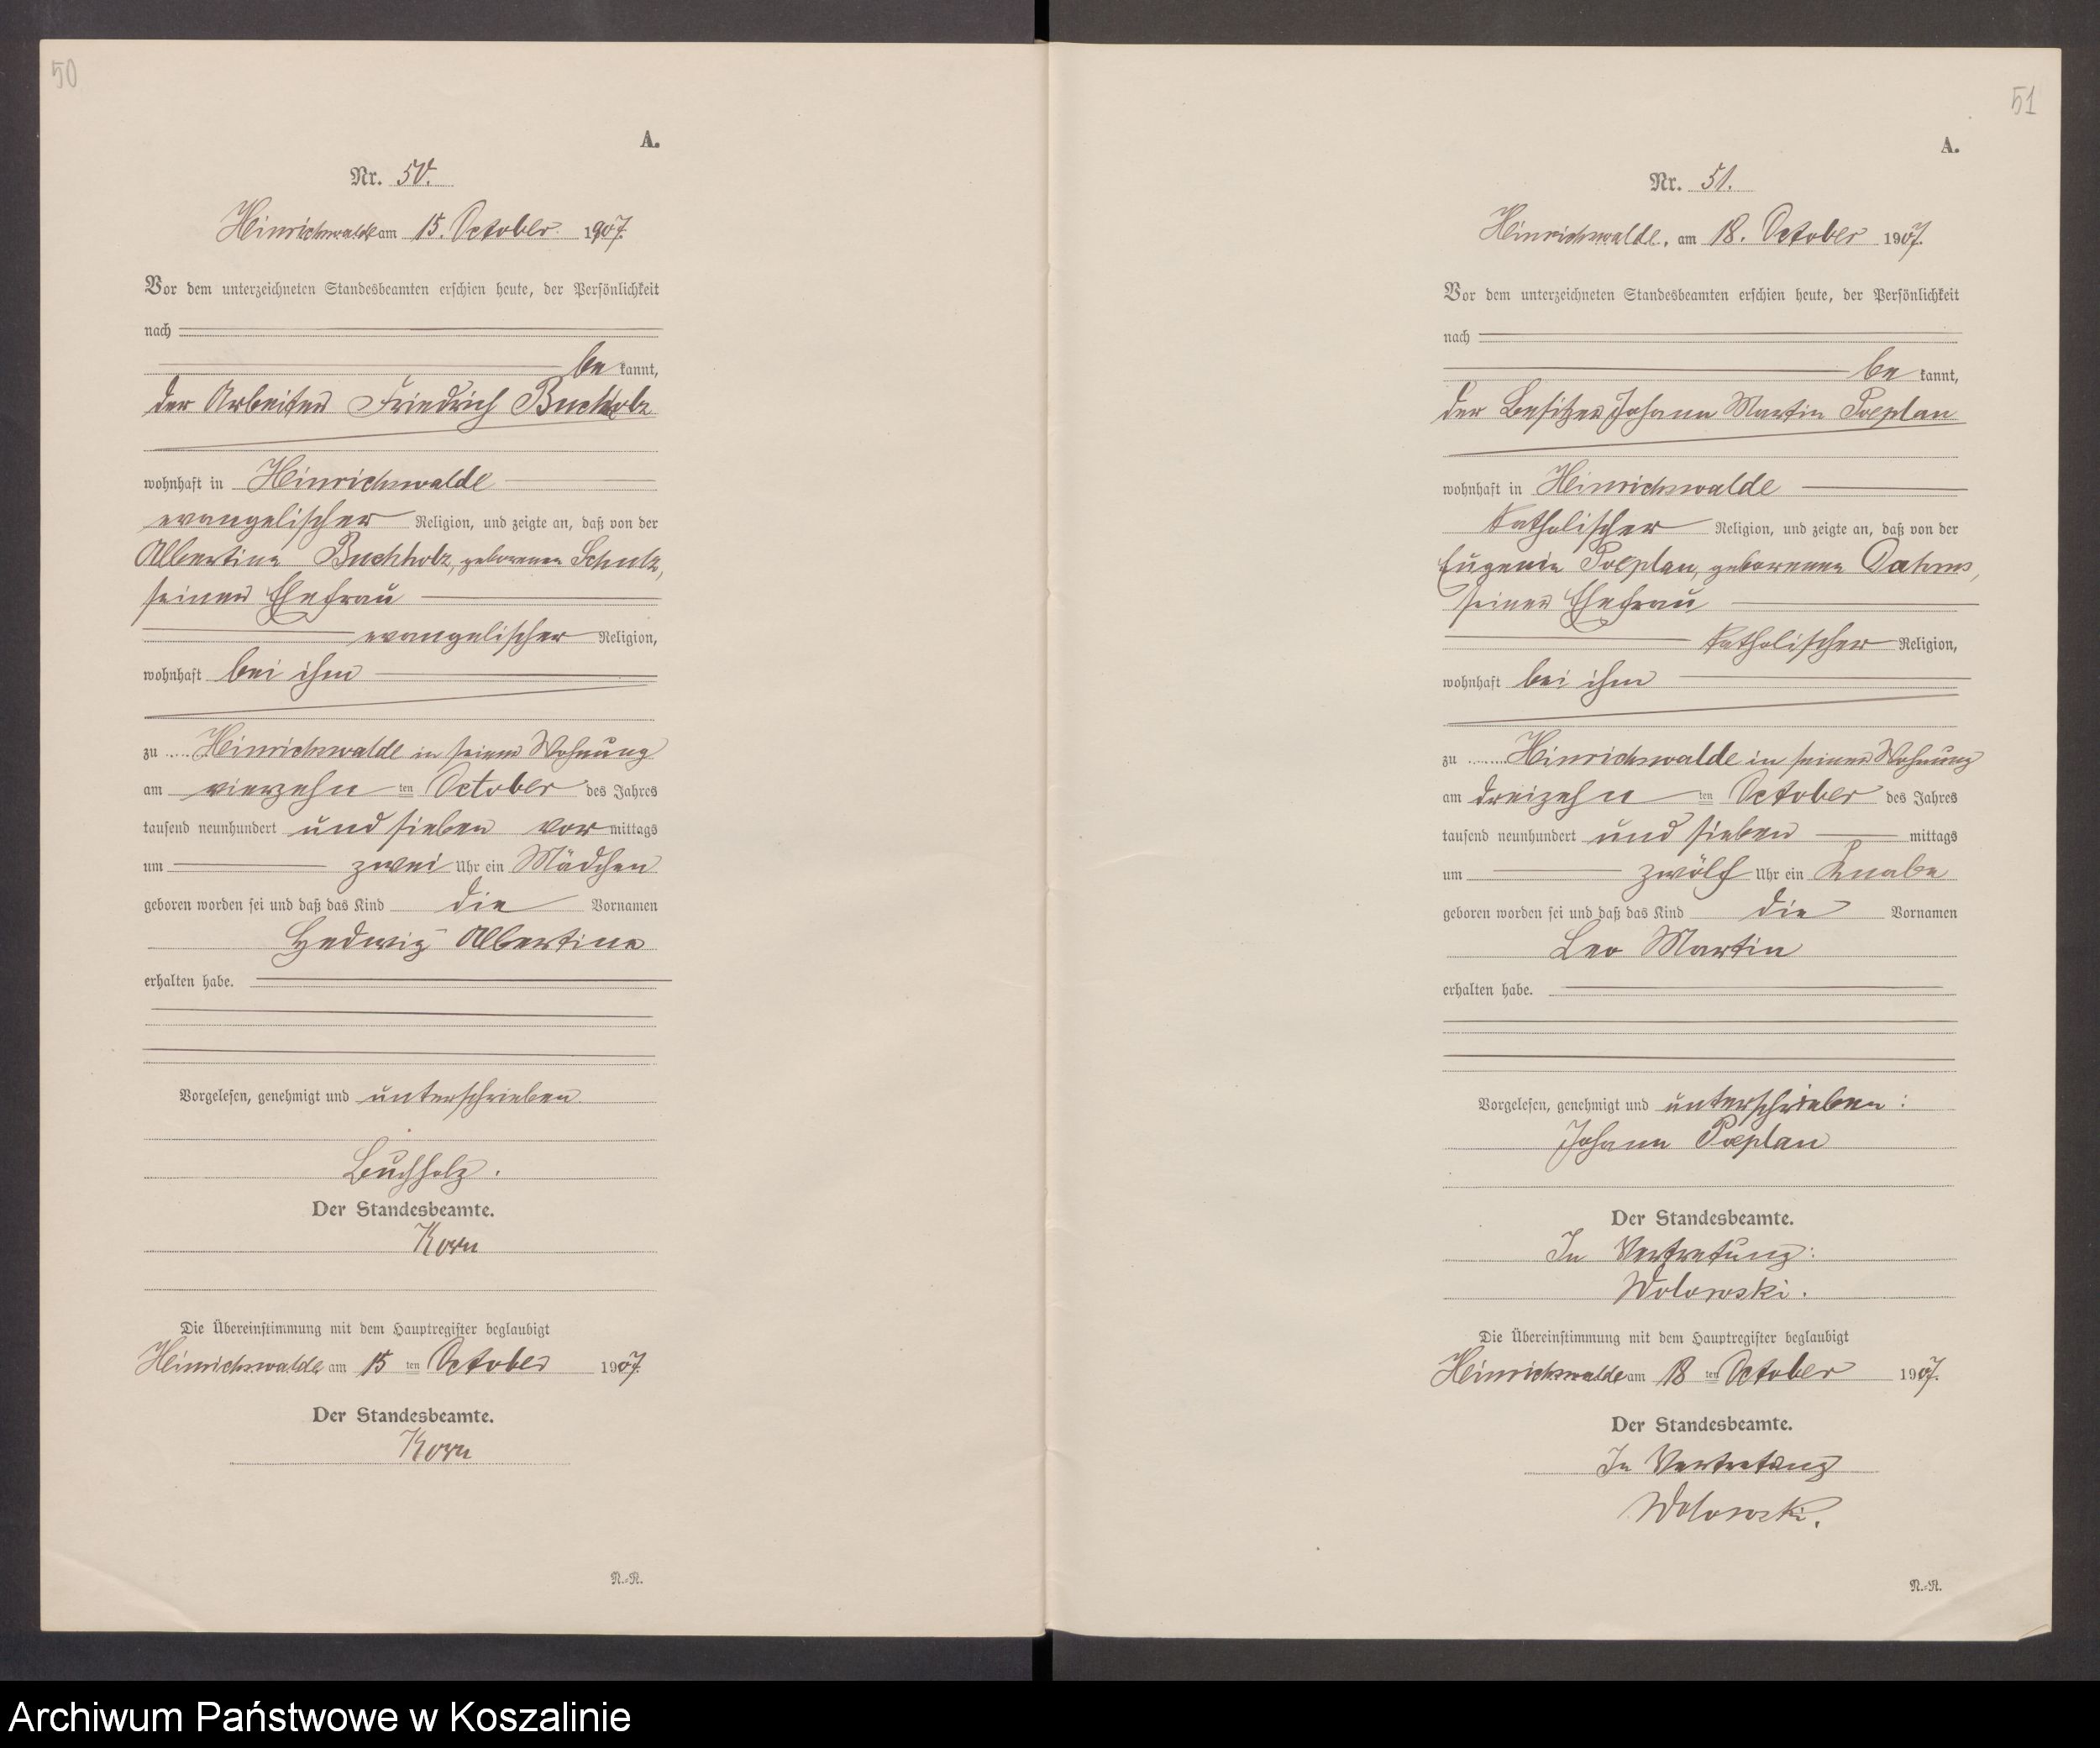 50
A.
Nr. 50.
Heinrichswalde am 15. October 1907.
Vor dem unterzeichneten Standesbeamten erschien heute, der Persönlichkeit
nach
be kannt,
der Arbeiter Friedrich Buchholz
wohnhaft in Heinrichswalde
evangelischer Religion, und zeigte an, daß von der
Albertine Buchholz, geborenen Schulz,
seiner Ehefrau
evangelischer Religion,
wohnhaft bei ihm
zu Heinrichswalde in seiner Wohnung
am vierzehn ten October des Jahres
tausend neunhundert und sieben vor mittags
um zwei Uhr ein Mädchen
geboren worden sei und daß das Kind die Vornamen
Hedwig Albertine
erhalten habe.
Vorgelesen, genehmigt und unterschrieben
Buchholz.
Der Standesbeamte.
Korn
Die Übereinstimmung mit dem Hauptregister beglaubigt
Heinrichswalde am 15 ten October 1907.
Der Standesbeamte.
Korn
N.=R.
51
A.
Nr. 51.
Heinrichswalde, am 18. October 1907.
Vor dem unterzeichneten Standesbeamten erschien heute, der Persönlichkeit
nach
be kannt,
der Besitzer Johann Martin Poeplau
wohnhaft in Heinrichswalde
katholischer Religion, und zeigte an, daß von der
Eugenie Poeplau, geborenen Dahms,
seiner Ehefrau
katholischer Religion,
wohnhaft bei ihm
zu Heinrichswalde in seiner Wohnung
am dreizehn ten October des Jahres
tausend neunhundert und sieben mittags
um zwölf Uhr ein Knabe
geboren worden sei und daß das Kind die Vornamen
Leo Martin
erhalten habe.
Vorgelesen, genehmigt und unterschrieben:
Johann Poeplau
Der Standesbeamte.
In Vertretung:
Wolowski.
Die Übereinstimmung mit dem Hauptregister beglaubigt
Heinrichswalde am 18 ten October 1907.
Der Standesbeamte.
In Vertretung
Wolowski.
N.=R.
Archiwum Państwowe w Koszalinie